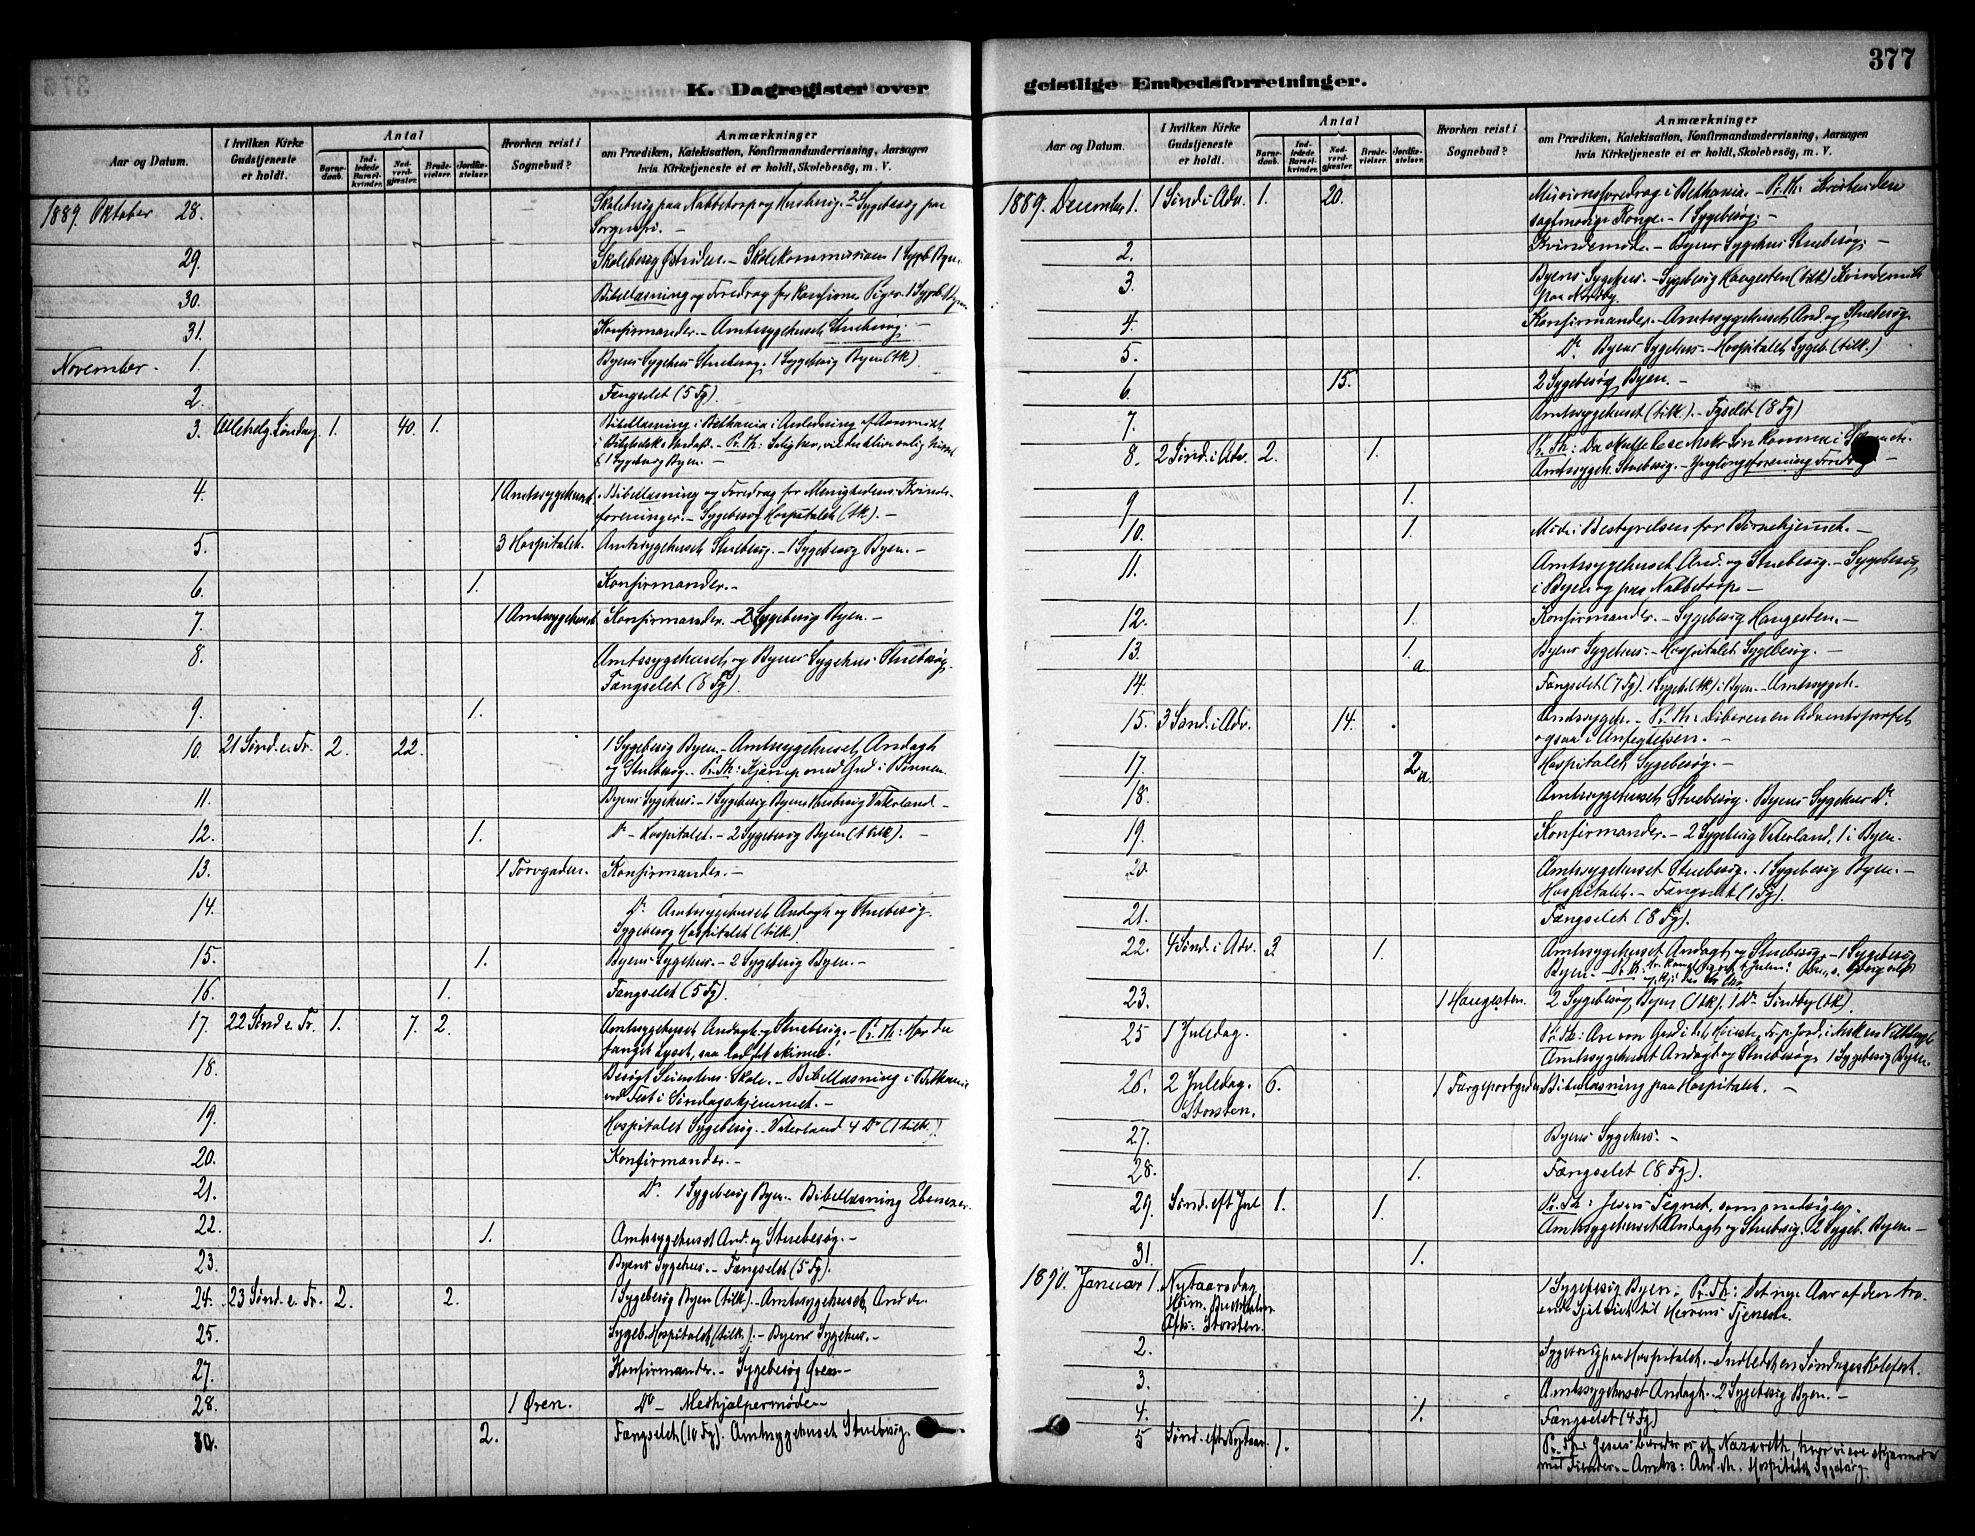 377
K. Dagregister over
geistlige Embedsforretninger.
Aar og Datum.
I hvilken Kirke Gudstjeneste er holdt.
Antal
Barnedaab.
Indledede Barselkvinder.
Nadverdgjester.
Brudevielser.
Jordfæstelser.
Hvorhen reist i Sognebud?
Anmærkninger
om Prædiken, Katekisation, Konfirmandundervisning, Aarsagen
hvis Kirketjeneste ei er holdt, Skolebesøg, m. V.
1889. Oktober 28. Skolebesøg paa Nabbetorp og Husberg. 2 Sygebesøg paa
Sorgenfri. –
29. Skolebesøg Østsiden. – Skolekommission 1 Sygeb. Byen.
30. Bibellæsning og Foredrag for konfirm. Piger. 1 Sygeb. Byen
31. Konfirmander. – Amtssygehuset Stuebesøg. –
November. 1. Byens Sygehus Stuebesøg. 1 Sygebesøg Byen (tk)
2. Fængselet (5 Fg).
3. Allehelg. Søndag 1. 40. 1. Bibellæsning i Bethania i Anledning af
Pr. Th:
& 1 Sygebesøg Byen. –
4. 1 Amtssygehuset. Bibellæsning og Foredrag for Menighedens Kvinde-
foreninger. – Sygebesøg Hospitalet (tk). –
5. 3 Hospitalet. Amtssygehuset Stuebesøg. – 1 Sygebesøg Byen. –
6. 1. Konfirmander. –
7. 1 Amtssygehuset. Konfirmander. – 2 Sygebesøg Byen. –
8. Amtssygehuset og Byens Sygehus Stuebesøg.
Fængselet (8 Fg).
9. 1.
10. 21 Sønd. e. Tr. 2. 22. 1 Sygebesøg Byen. – Amtssygehuset Andagt
og Stuebesøg. Pr. Th: Kjæmp med Gud i Bønnen.
11. Byens Sygehus. – 1 Sygebesøg Byen Husbesøg Vaterland –
12. 1. Do – Hospitalet. – 2 Sygebesøg Byen (1 tilk). –
13. 1 Torvgaden. Konfirmander. –
14. Do Amtssygehuset Andagt og Stuebesøg.
Sygebesøg Hospitalet (tilk.)
15. 1. Byens Sygehus. – 2 Sygebesøg Byen. –
16. 1. Fængselet (5 Fg).
17. 22 Sønd e. Tr. 1. 7. 2. Amtssygehuset Andagt og Stuebesøg. – Pr. Th: Har du
fanget Lyset, saa lad det skinne!
18. Besøgt Seierstens Skole. – Bibellæsning i Bethania
ved Fest i Søndagshjemmet. –
19. Hospitalet Sygebesøg. – Vaterland 4 Do (1 tilk.)
20. Konfirmander. –
21. Do 1 Sygebesøg Byen. – Bibellæsning Ebenezer.
22. 1. Amtssygehuset And. og Stuebesøg. –
23. Byens Sygehus. – Fængselet (5 Fg).
24. 23 Sønd. e. Tr. 2. 2. 1 Sygebesøg Byen (tilk). – Amtssygehuset,
25. Sygeb. Hospitalet (tilk.). – Byens Sygehus. –
27. Konfirmander. – Sygebesøg Øren –
28. 1 Øren. Do – Medhjælpermøde –
30. 2. Fængselet (10 Fg). Amtssygehuset Stuebesøg.
Aar og Datum.
I hvilken Kirke Gudstjeneste er holdt.
Antal
Barnedaab.
Indledede Barselkvinder.
Nadverdgjester.
Brudevielser.
Jordfæstelser.
Hvorhen reist i Sognebud?
Anmærkninger
om Prædiken, Katekisation, Konfirmandundervisning, Aarsagen
hvis Kirketjeneste ei er holdt, Skolebesøg, m. V.
1889. December 1. 1 Sønd i Adv. 1. 20. Missionsforedrag i Bethania. – Pr. Th: Kristus den
sagtmodige Konge. – 1 Sygebesøg. –
2. Kvindemøde. – Byens Sygehus Stuebesøg. –
3. Byens Sygehus. – Sygebesøg Haugesten (tilk) Kvindemøde
paa Nordby.
4. Konfirmander. – Amtssygehuset And. og Stuebesøg.
5. Do Byens Sygehus. – Hospitalet Sygeb. (tilk.)
6. 15. 2 Sygebesøg Byen. –
7. Amtssygehuset (tilk.). – Fgselet (8 Fg)
8. 2 Sønd. i Adv. 2. 1. Pr. Th:
Amtssygeh. Stuebesøg. – Ynglingeforening Foredrag –
9. 1.
10. 1. Møde i Bestyrelsen for Børnehjemet. –
11. Amtssygehuset And. og Stuebesøg. – Sygebesøg
i Byen og paa Nabbetorp. –
12. 1. Konfirmander. – Sygebesøg Haugesten. –
13. 1. a. Byens Sygehus. – Hospitalet Sygebesøg. –
14. Fængselet (7 Fg). 1 Sygeb. (tk) i Byen. – Amtssygeh.
15. 3 Sønd. i Adv. 14. Amtssygeh. – Pr. Th: Liberen en Adventsprofet
ogsaa i Anfegtelsen. –
17. 2 a. Hospitalet Sygebesøg. –
18. Amtssygehuset Stuebesøg. Byens Sygehus Do.
19. Konfirmander. – 2 Sygebesøg Vaterland, 1 i Byen.
20. Amtssygehuset Stuebesøg. 1 Sygebesøg Byen. –
Hospitalet. – Fængselet (1 Fg).
21. Fængselet (8 Fg).
22. 4 Sønd. i Adv. 3. 1. Amtssygehuset Andagt og Stuebesøg. – 1 Sygebesøg
Byen. – Pr. Th:
23. 1 Haugesten. 2 Sygebesøg Byen (1 tk). 1 Do Sundby (tk).
25 1 Juledag. Pr. Th: Ære være Gud i det Høieste, Fr. p. Jord. i Msken Velbehagl
Amtssygehuset Andagt og Stuebesøg. 1 Sygebesøg Byen.
26. 2 Juledag. Storsten. 6. 1 Færgeportgaden Bibellæsning paa Hospitalet. –
27. Byens Sygehus. –
28. 1. Fængselet (8 Fg).
29. Sønd. eft Jul 1. 1. Pr. Th: Jesus Tegnet, som modsiges.
Amtssygehuset Andagt og Stuebesøg. 2 Sygeb. Byen –
31. 1.
1890. Januar 1. Nytaarsdag
Afts: Storsten. 1 Sygebesøg Byen. Pr. Th: Det nye Aar af den tro-
ende Sjæl viet til Herrens Tjeneste.
2. Sygebesøg paa Hospitalet. – Indledet en Søndagsskolefest.
3. Amtssygehuset Andagt. 2 Sygebesøg Byen. –
4. 1. Fængselet (4 Fg)
5 Sønd. eft Nytaar. 1. Pr. Th: Jesus
med Fiender. – Amtss: And. Hospitalet Sygebesøg